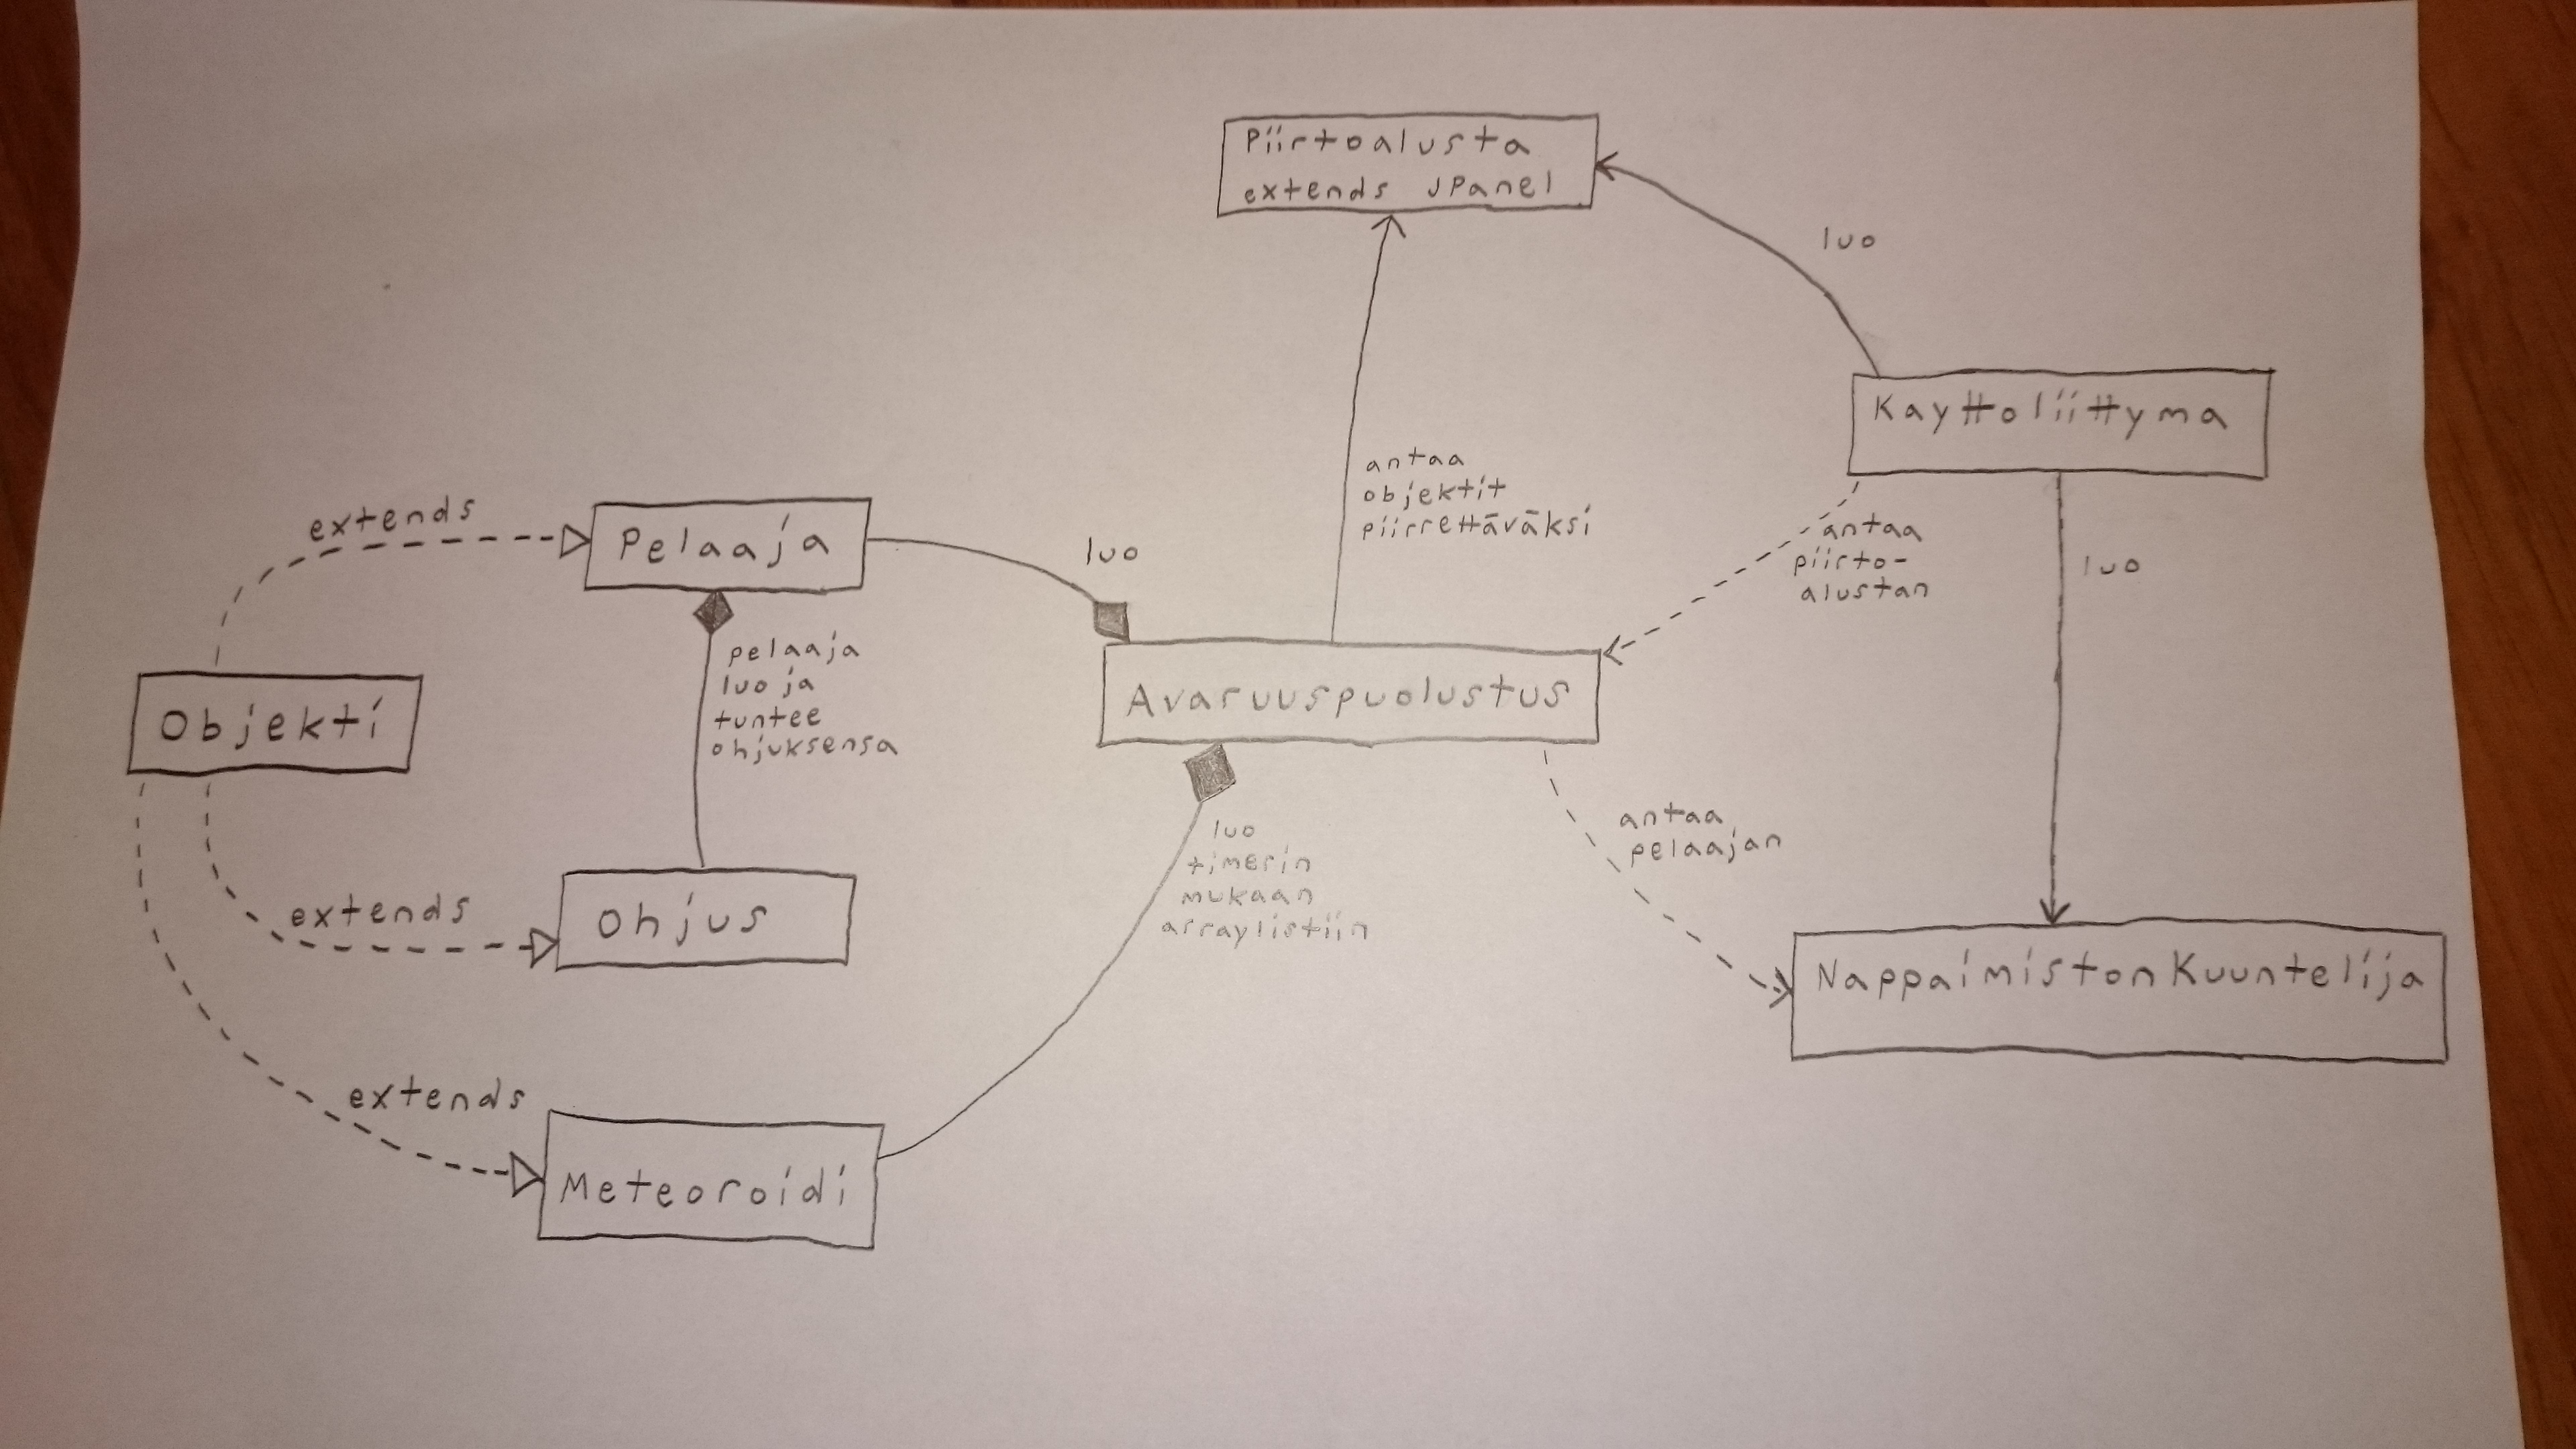 Piirtoalusta
extends JPanel
luo
Kayttoliittyma
antaa
objektit
piirrettäväksi
extends
Pelaaja
luo
antaa
piirto-
alustan
luo
pelaaja
luo ja
tuntee
ohjuksensa
Objekti
Avaruuspuolustus
luo
timerin
mukaan
arraylistiin
antaa
pelaajan
extends
Ohjus
NappaimistonKuuntelija
extends
Meteoroidi